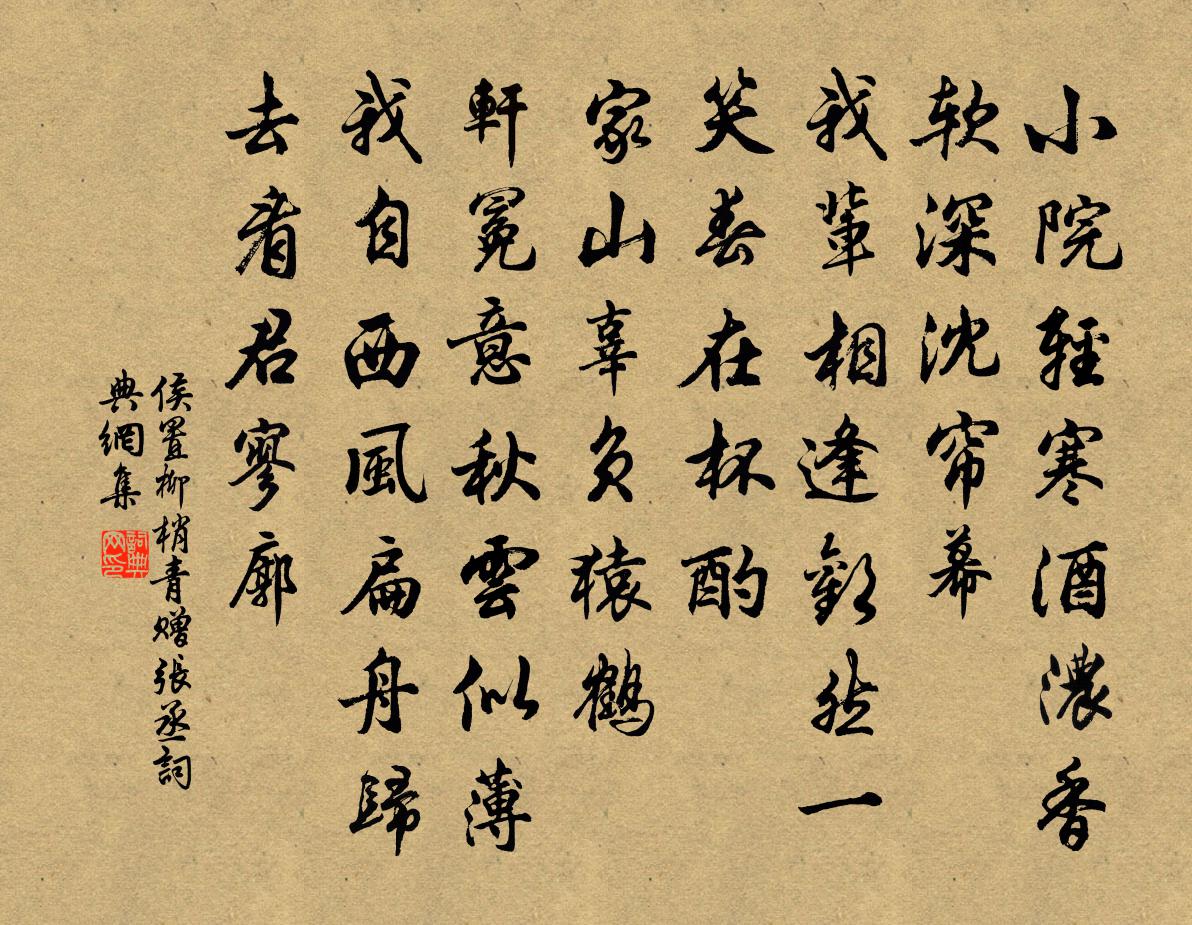 小院輕寒酒濃香
軟深沈帘幕
我輩相逢歡然一
笑春在杯酌
家山辜負猿鶴
軒冕意秋雲似薄
我自西風扁舟歸
去看君寥廓
侯置柳梢青贈張丞詞
典網集
詞典網印